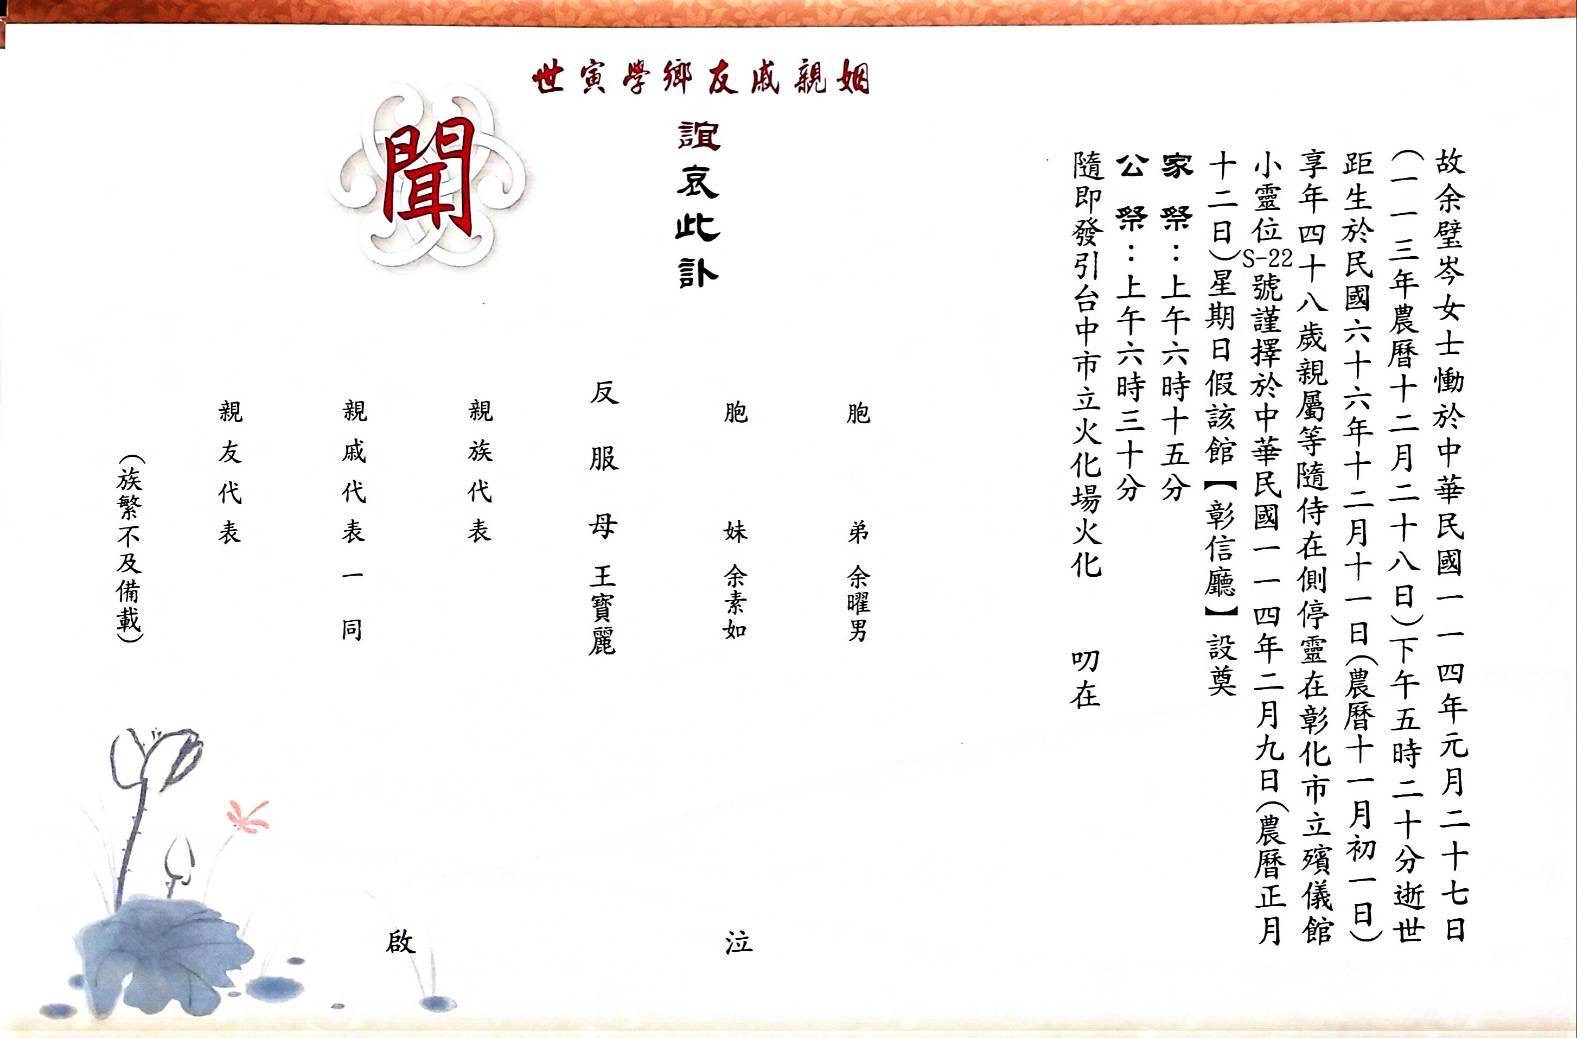 故余璧岑女士慟於中華民國一一四年元月二十七日
(一一三年農曆十二月二十八日)下午五時二十分逝世
距生於民國六十六年十二月十一日(農曆十一月初一日)
享年四十八歲親屬等隨侍在側停靈在彰化市立殯儀館
小靈位S-22號謹擇於中華民國一一四年二月九日(農曆正月
十二日)星期日假該館【彰信廳】設奠
家祭:上午六時十五分
公祭:上午六時三十分
隨即發引台中市立火化場火化 叨在
姻親戚友鄉學寅世
誼哀此訃
聞
胞弟 余曜男
胞妹 余素如
反服母 王寶麗
泣
親族代表
親戚代表一同
親友代表
(族繁不及備載)
啟